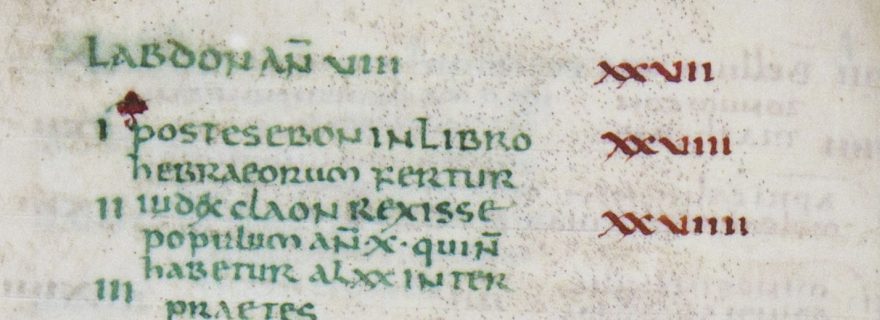 LABDON AN̄ VIII XXVII
I POSTESEBON IN LIBRO XXVIII
HEBRAEORUM FERTUR
II IUDEX CLAON REXISSE XXVIIII
POPULUM AN̄ X· QUI N̄
HABETUR A LXX INTER
III PRAETES